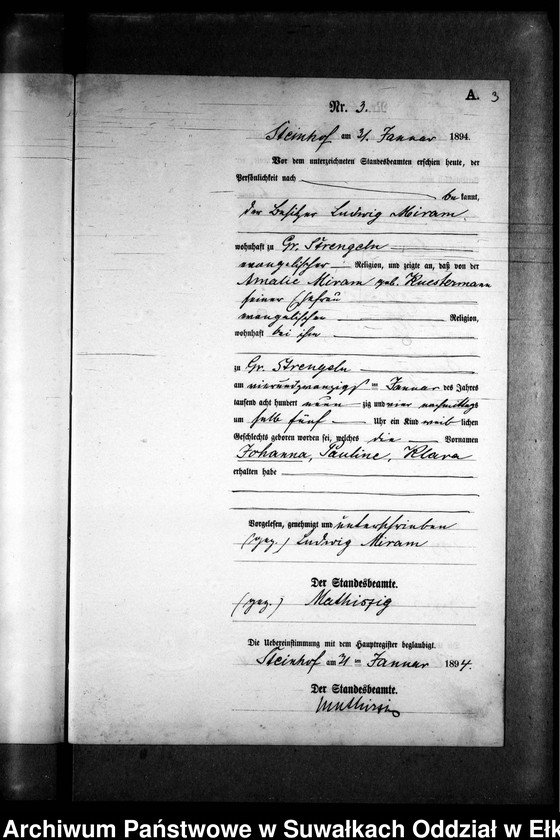 A. 3
Nr. 3.
Steinhof am 31. Januar 1894
Vor dem unterzeichneten Standesbeamten erschien heute, der
Persönlichkeit nach
bekannt,
der Besitzer Ludwig Miram,
wohnhaft zu Gr. Strengeln
evangelischer Religion, und zeigte an, daß von der
Amalie Miram geb. Kuestermann
seiner Ehefrau
evangelischer Religion,
wohnhaft bei ihm
zu Gr. Strengeln
am vierundzwanzigsten Januar des Jahres
tausend acht hundert neunzig und vier nachmittags
um halb fünf Uhr ein Kind weiblichen
Geschlechts geboren worden sei, welches die Vornamen
Johanna, Pauline, Klara
erhalten habe
Vorgelesen, genehmigt und unterschrieben
(gez.) Ludwig Miram
Der Standesbeamte.
(gez.) Mathiszig
Die Uebereinstimmung mit dem Hauptregister beglaubigt.
Steinhof am 31 ten Januar 1894.
Der Standesbeamte.
Archiwum Państwowe w Suwałkach Oddział w Ełk